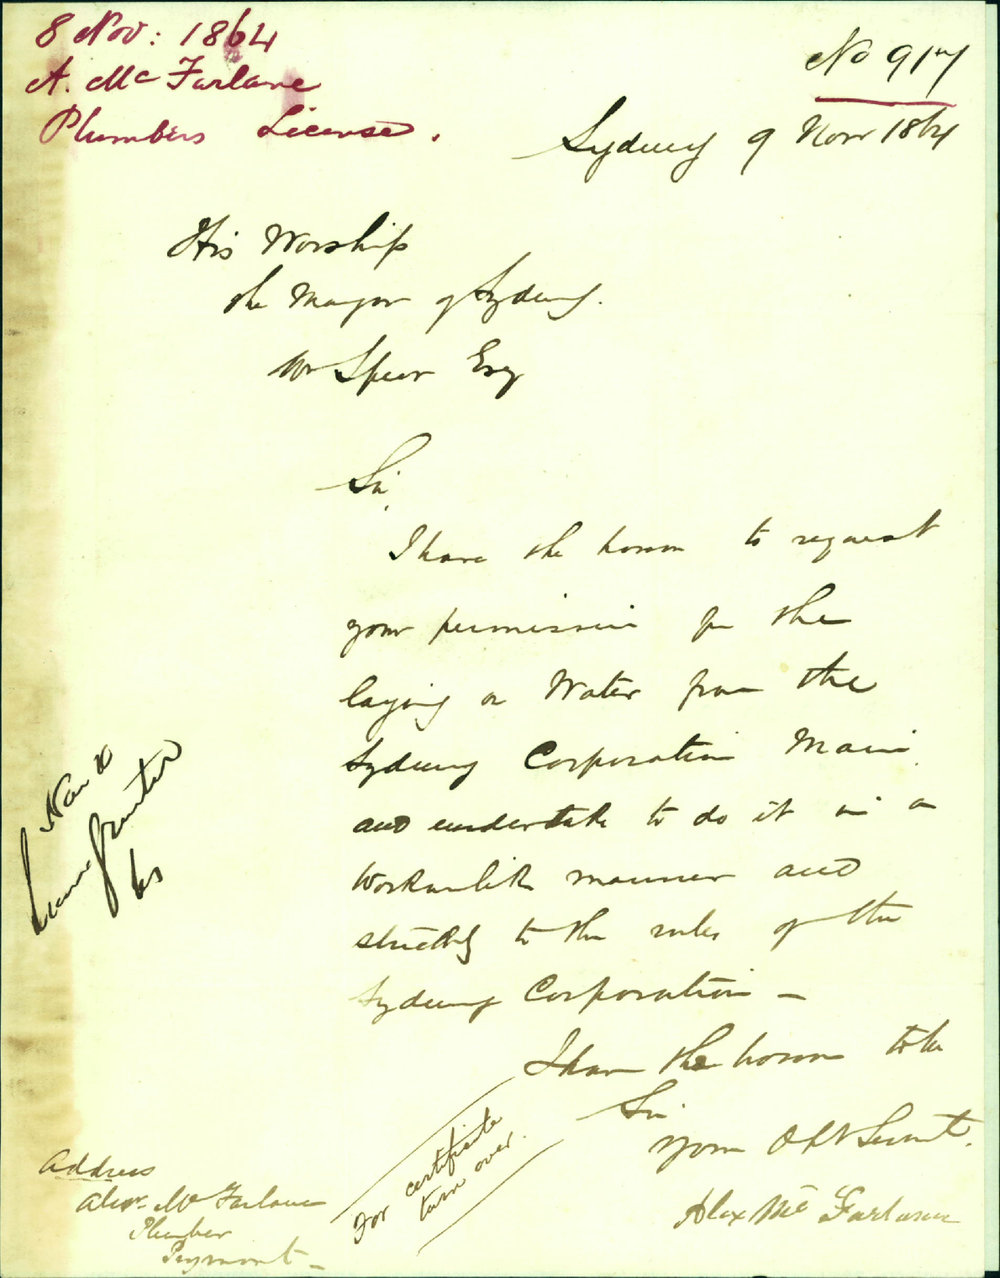 8 Nov: 1864
A. McFarlane
Plumbers License.
No 917
Sydney 9 Novr 1864
His Worship
the Mayor of Sydney.
Wm Speer Esq
Sir,
I have the honor to request
your permission for the
laying on Water from the
Sydney Corporation Main
and undertake to do it in a
Workmanlike manner and
strictly to the rules of the
Sydney Corporation –
I have the honor to be
Sir
Your Obt Servant.
Alex Mc Farlane
Nov 10
granted
For certificate
turn over.
Address
Alexr. Mc Farlane
Plumber
Pyrmont –